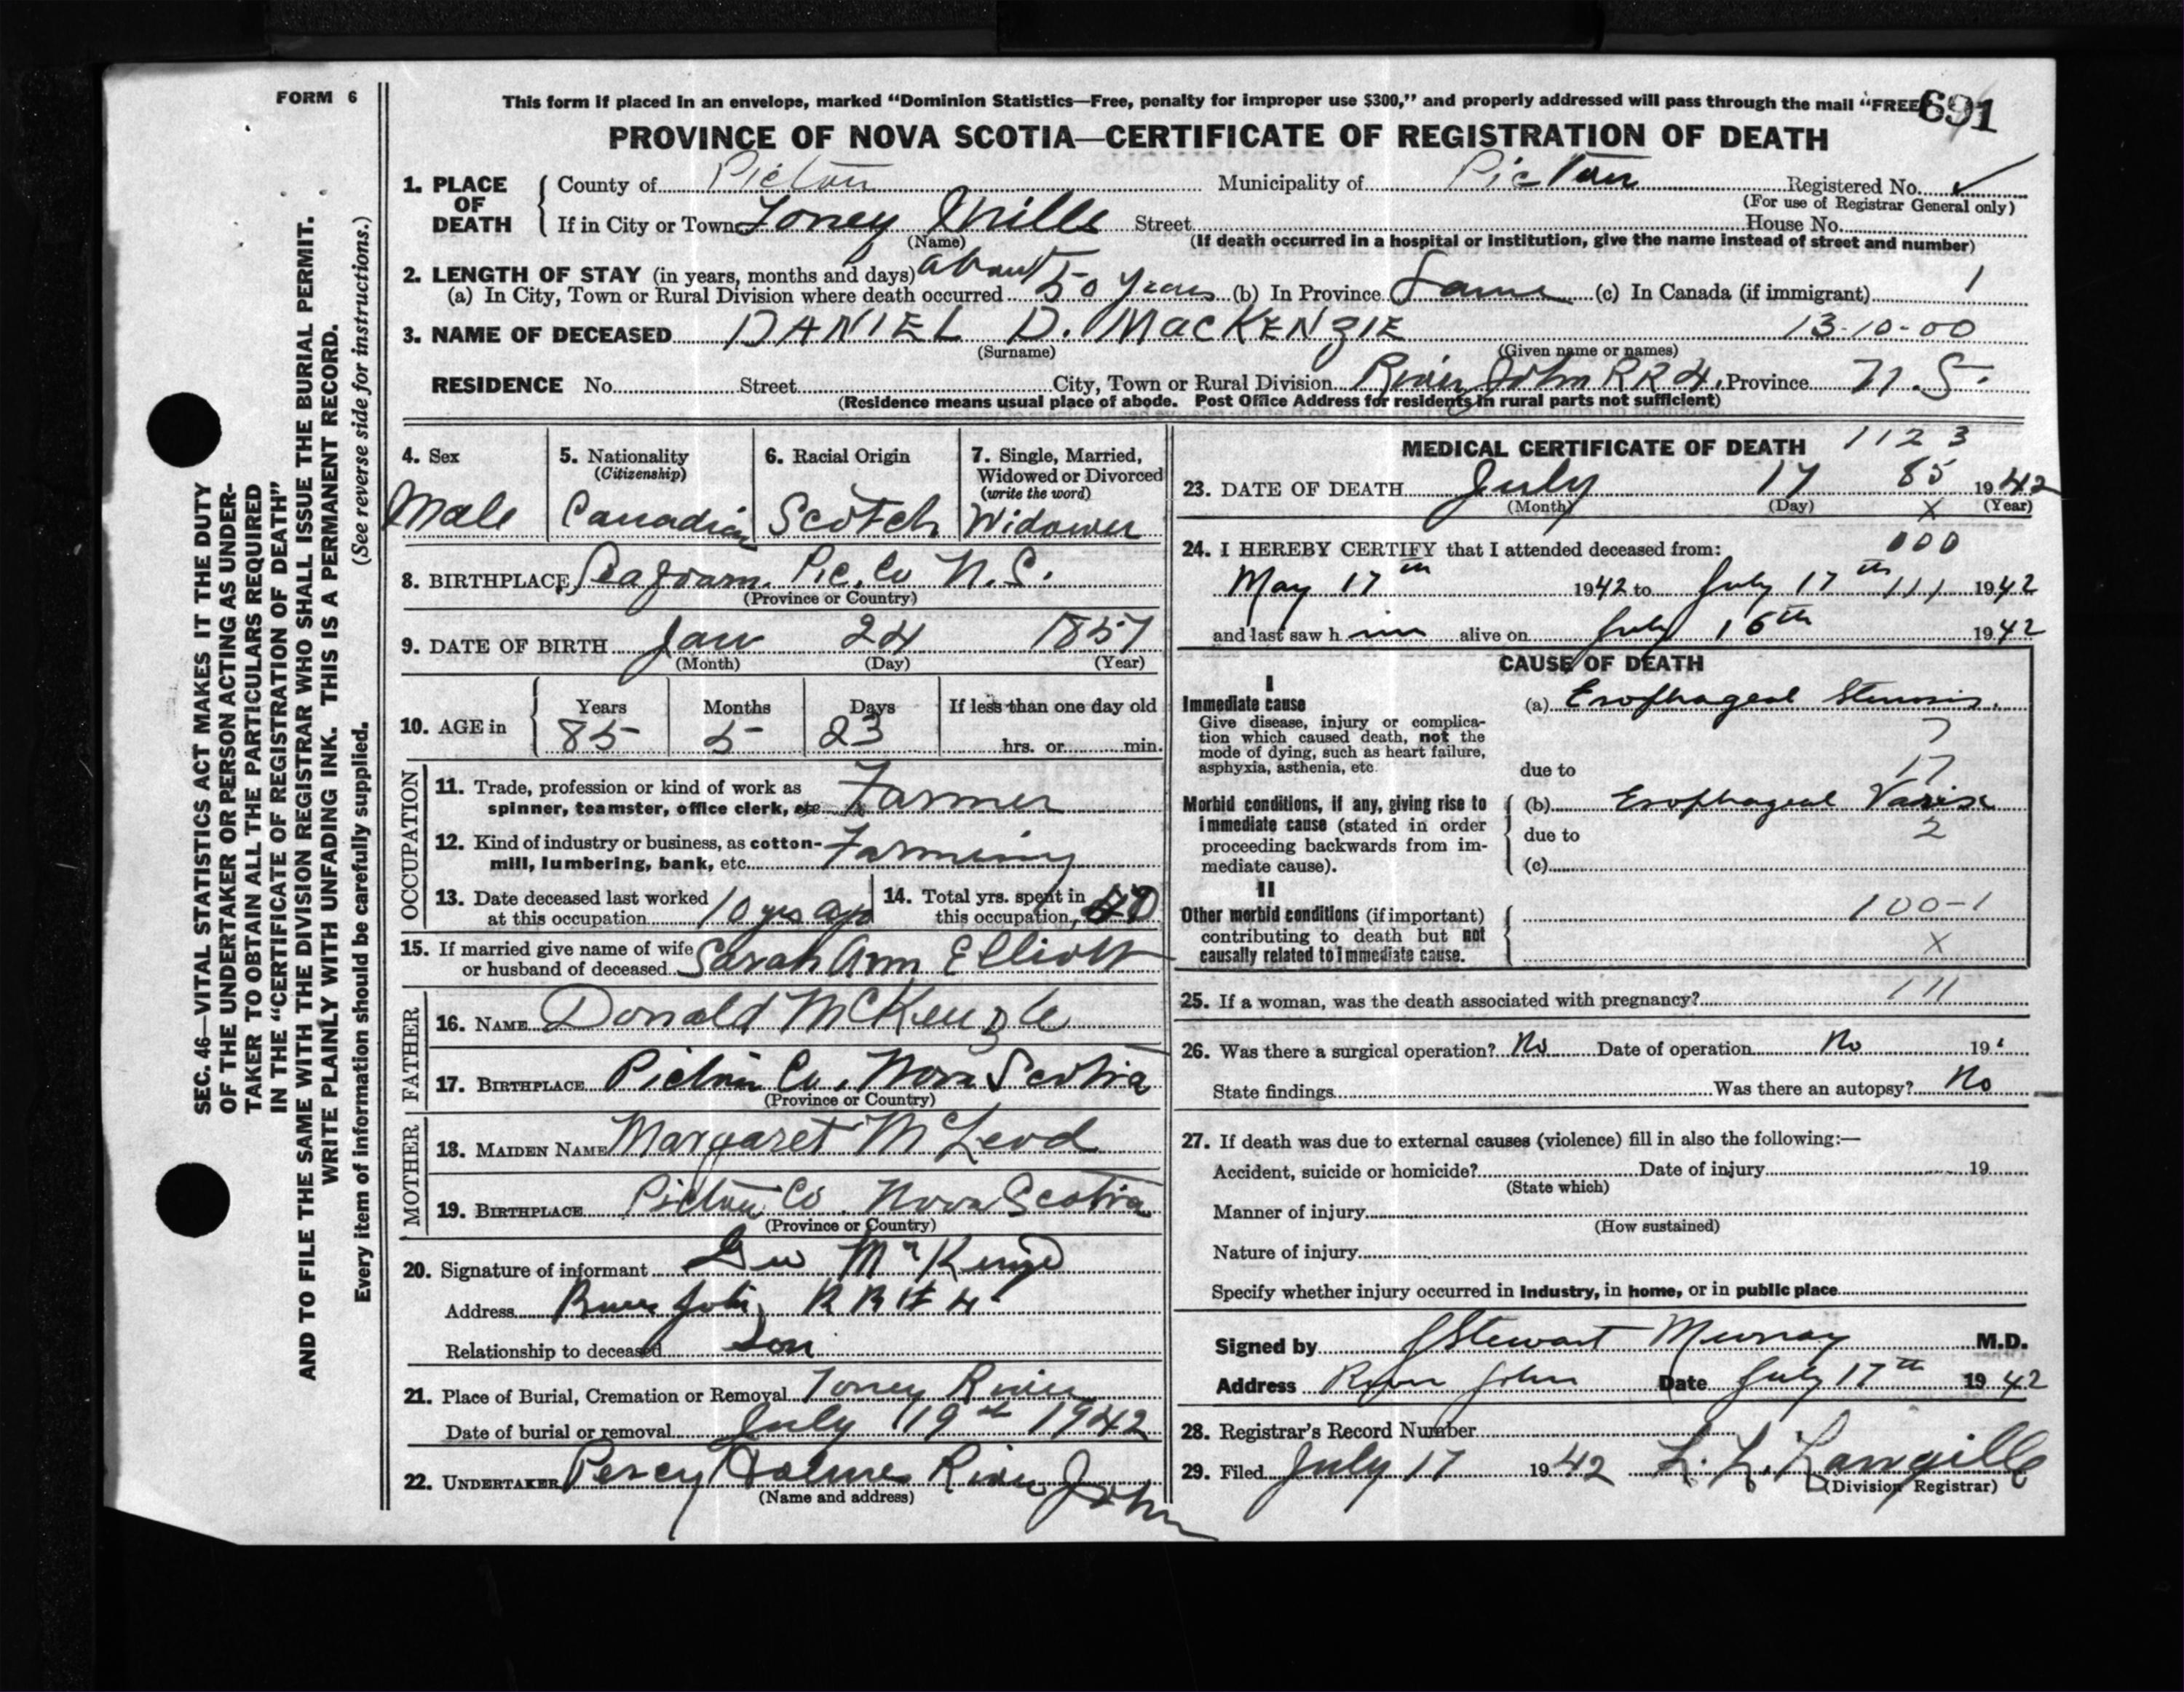 FORM 6
This form if placed in an envelope, marked "Dominion Statistics—Free, penalty for improper use $300," and properly addressed will pass through the mail "FREE
691
PROVINCE OF NOVA SCOTIA—CERTIFICATE OF REGISTRATION OF DEATH
1. PLACE OF DEATH
County of Pictou Municipality of Pictou Registered No. ✓
(For use of Registrar General only)
If in City or Town Toney Mills Street House No.
(Name) (If death occurred in a hospital or institution, give the name instead of street and number)
2. LENGTH OF STAY (in years, months and days) about
(a) In City, Town or Rural Division where death occurred 50 years (b) In Province Same (c) In Canada (if immigrant) 1
3. NAME OF DECEASED DANIEL D. MacKENZIE 13-10-00
(Surname) (Given name or names)
RESIDENCE No. Street City, Town or Rural Division River John RR 4, Province N.S.
(Residence means usual place of abode. Post Office Address for residents in rural parts not sufficient)
4. Sex
Male
5. Nationality
(Citizenship)
Canadian
6. Racial Origin
Scotch
7. Single, Married,
Widowed or Divorced
(write the word)
Widower
8. BIRTHPLACE Seafoam. Pic. Co N.S.
(Province or Country)
9. DATE OF BIRTH Jan 24 1857
(Month) (Day) (Year)
10. AGE in
Years Months Days If less than one day old
85 5 23 hrs. or min.
OCCUPATION
11. Trade, profession or kind of work as
spinner, teamster, office clerk, etc Farmer
12. Kind of industry or business, as cotton-
mill, lumbering, bank, etc. Farming
13. Date deceased last worked
at this occupation 10 yrs ago
14. Total yrs. spent in
this occupation
15. If married give name of wife
or husband of deceased Sarah Ann Elliott
FATHER
16. NAME Donald McKenzie
17. BIRTHPLACE Pictou Co. Nova Scotia
(Province or Country)
MOTHER
18. MAIDEN NAME Margaret McLeod
19. BIRTHPLACE Pictou Co. Nova Scotia
(Province or Country)
20. Signature of informant Geo McKenzie
Address River John, RR # 4
Relationship to deceased Son
21. Place of Burial, Cremation or Removal Toney River
Date of burial or removal July 19th 1942
22. UNDERTAKER Percy Holmes River John
(Name and address)
MEDICAL CERTIFICATE OF DEATH 1123
23. DATE OF DEATH July 17 85 1942
(Month) (Day) X (Year)
24. I HEREBY CERTIFY that I attended deceased from: 000
May 17th 1942 to July 17th 111 1942
and last saw him alive on July 16th 1942
CAUSE OF DEATH
I
Immediate cause
Give disease, injury or complica-
tion which caused death, not the
mode of dying, such as heart failure,
asphyxia, asthenia, etc.
(a) Esophageal Stenosis.
7
due to 17
Morbid conditions, if any, giving rise to
immediate cause (stated in order
proceeding backwards from im-
mediate cause).
(b) Esophageal Varix
due to 2
(c)
II
Other morbid conditions (if important)
contributing to death but not
causally related to immediate cause.
100-1
X
25. If a woman, was the death associated with pregnancy? 111
26. Was there a surgical operation? No Date of operation No 19
State findings Was there an autopsy? No
27. If death was due to external causes (violence) fill in also the following:—
Accident, suicide or homicide? Date of injury 19
(State which)
Manner of injury
(How sustained)
Nature of injury
Specify whether injury occurred in industry, in home, or in public place
Signed by J Stewart Murray M.D.
Address River John Date July 17th 1942
28. Registrar's Record Number
29. Filed July 17 1942 L. L. Langille
(Division Registrar)
SEC. 46—VITAL STATISTICS ACT MAKES IT THE DUTY
OF THE UNDERTAKER OR PERSON ACTING AS UNDER-
TAKER TO OBTAIN ALL THE PARTICULARS REQUIRED
IN THE "CERTIFICATE OF REGISTRATION OF DEATH"
AND TO FILE THE SAME WITH THE DIVISION REGISTRAR WHO SHALL ISSUE THE BURIAL PERMIT.
WRITE PLAINLY WITH UNFADING INK. THIS IS A PERMANENT RECORD.
Every item of information should be carefully supplied. (See reverse side for instructions.)